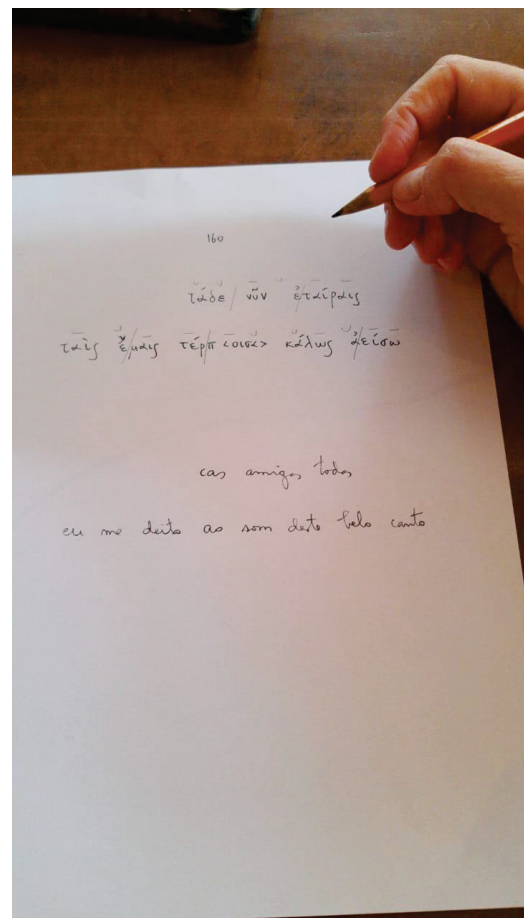 160
τάδε / νῦν ἐταίραις
ταὶς ἔ/μαις τέρπ <οισα> κάλως ἀείσω
cas amigas todas
eu me deito ao som deste belo canto